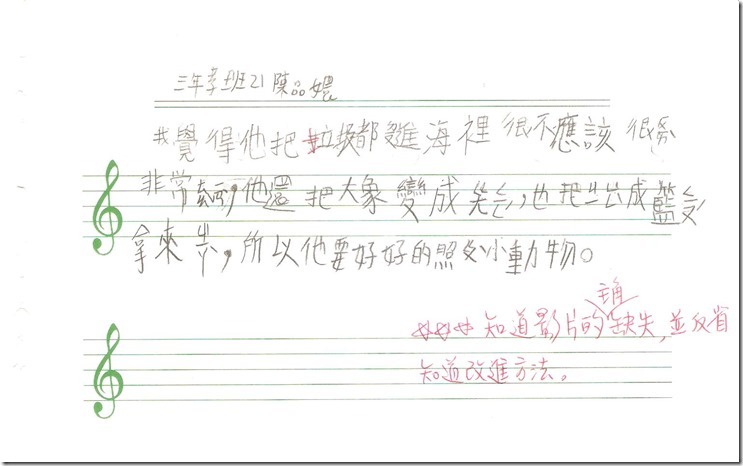 三年孝班21陳品嬛
我覺得他把垃圾都丟進海裡很不應該很
非常 他還把大象變成 也把 成籃
拿來 ，所以他要好好的照 小動物。
主角
知道影片的缺失，並反省
知道改進方法。